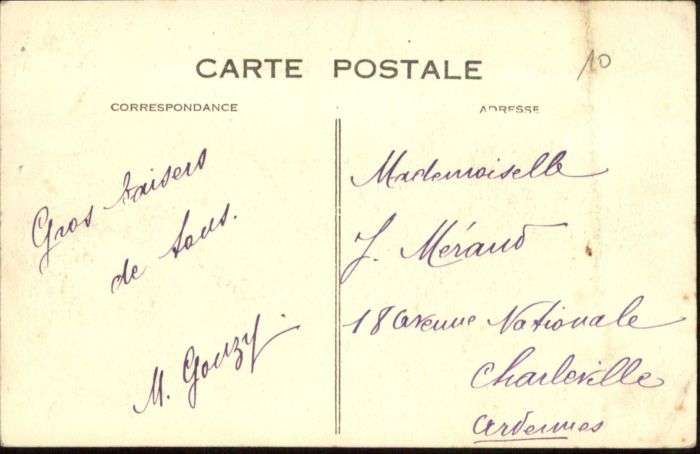 CARTE POSTALE
10
CORRESPONDANCE
ADRESSE
Gros baisers
de tous.
M. Gouzy.
Mademoiselle
J. Méraud
18 avenue Nationale
Charleville
Ardennes